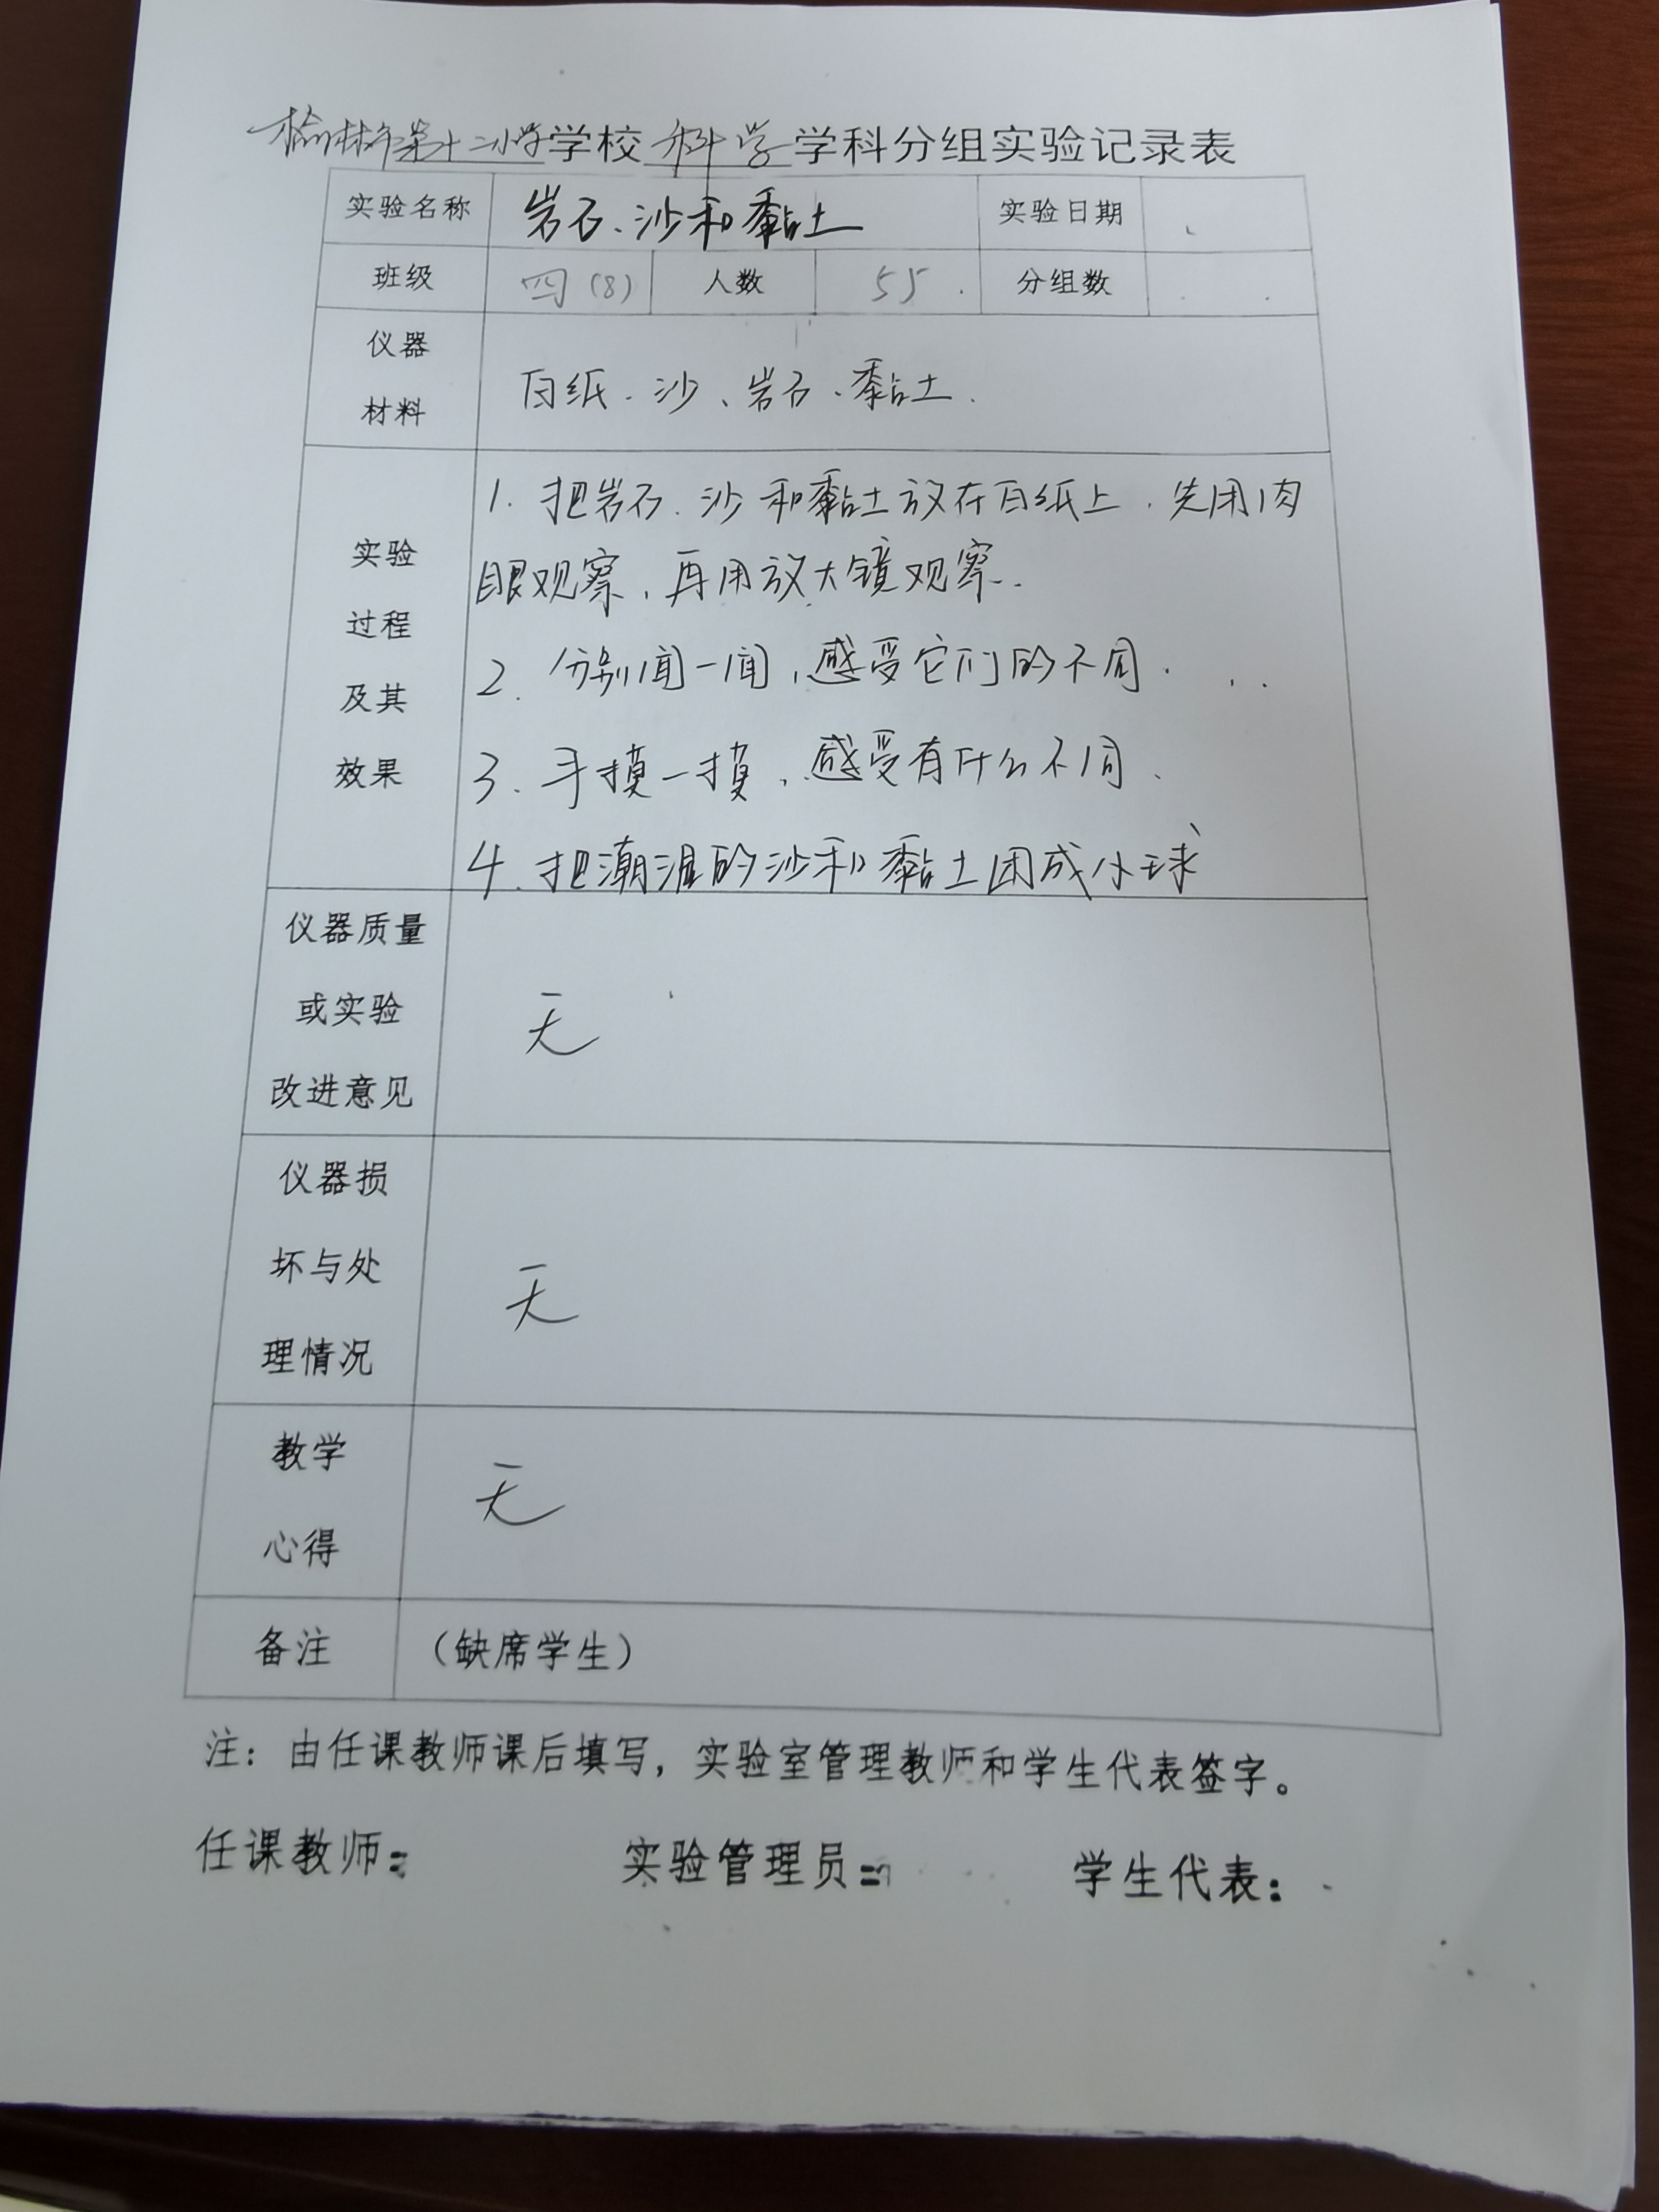 榆林市第十二小学学校 科学 学科分组实验记录表
实验名称 岩石、沙和黏土 实验日期
班级 四(8) 人数 55 分组数
仪器
材料
白纸、沙、岩石、黏土.
实验
过程
及其
效果
1. 把岩石、沙和黏土放在白纸上,先用肉
眼观察,再用放大镜观察.
2. 分别闻一闻,感受它们的不同.
3. 手摸一摸,感受有什么不同.
4. 把潮湿的沙和黏土团成小球
仪器质量
或实验
改进意见
无
仪器损
坏与处
理情况
无
教学
心得
无
备注 (缺席学生)
注:由任课教师课后填写,实验室管理教师和学生代表签字。
任课教师: 实验管理员: 学生代表: